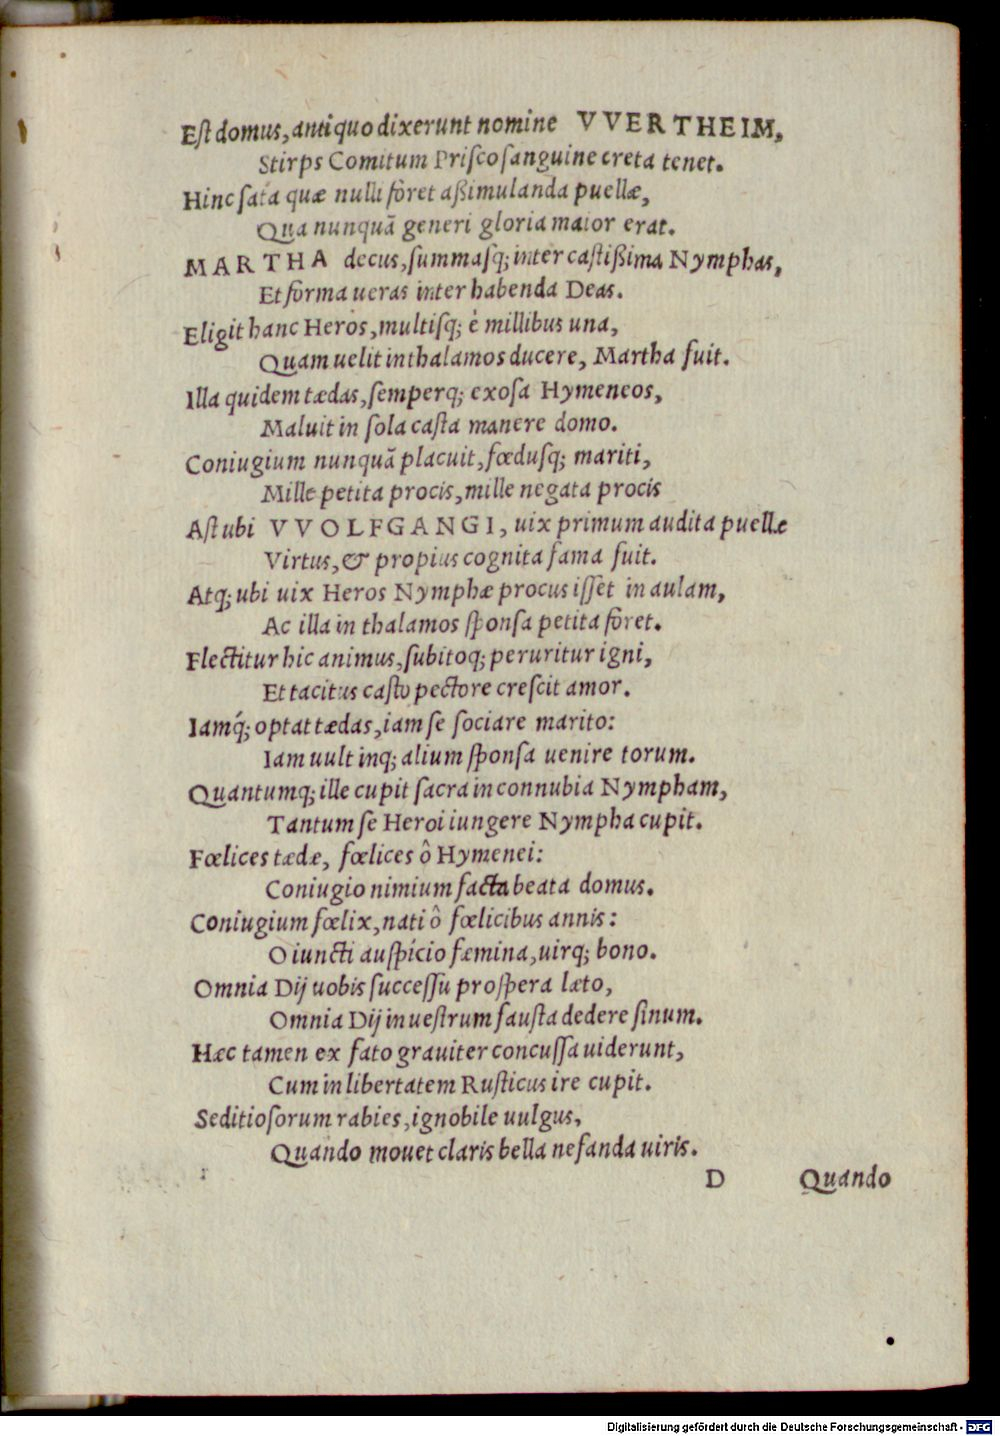 Eſt domus, antiquo dixerunt nomine VVERTHEIM,
Stirps Comitum Priſco ſanguine creta tenet.
Hinc ſata quæ nulli foret aßimulanda puellæ,
Qua nunquã generi gloria maior erat.
MARTHA decus, ſummaſq; inter caſtißima Nymphas,
Et forma ueras inter habenda Deas.
Eligit hanc Heros, multiſq; è millibus una,
Quam uelit in thalamos ducere, Martha fuit.
Illa quidem tædas, ſemperq; exoſa Hymeneos,
Maluit in ſola caſta manere domo.
Coniugium nunquã placuit, fœduſq; mariti,
Mille petita procis, mille negata procis
Aſt ubi VVOLFGANGI, uix primum audita puellæ
Virtus, & propius cognita fama fuit.
Atq; ubi uix Heros Nymphæ procus iſſet in aulam,
Ac illa in thalamos ſponſa petita foret.
Flectitur hic animus, ſubitoq; peruritur igni,
Et tacitus caſto pectore creſcit amor.
Iamq́; optat tædas, iam ſe ſociare marito:
Iam uult inq; alium ſponſa uenire torum.
Quantumq; ille cupit ſacra in connubia Nympham,
Tantum ſe Heroi iungere Nympha cupit.
Fœlices tædæ, fœlices ô Hymenei:
Coniugio nimium facta beata domus.
Coniugium fœlix, nati ô fœlicibus annis:
O iuncti auſpicio fæmina, uirq; bono.
Omnia Dij uobis ſucceſſu proſpera læto,
Omnia Dij in ueſtrum fauſta dedere ſinum.
Hæc tamen ex fato grauiter concuſſa uiderunt,
Cum in libertatem Ruſticus ire cupit.
Seditioſorum rabies, ignobile uulgus,
Quando mouet claris bella nefanda uiris.
D Quando
Digitalisierung gefördert durch die Deutsche Forschungsgemeinschaft - DFG